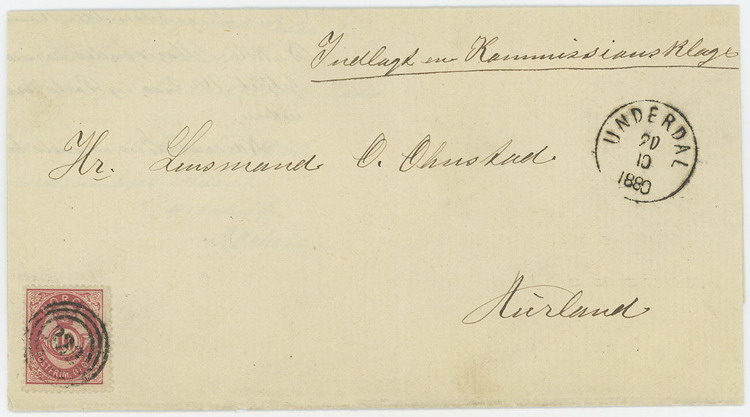 Indlagt en Kommissionsklage
UNDERDAL
20
10
1880
Hr. Lensmand O. Ohnstad
Aurland
NORGE
10